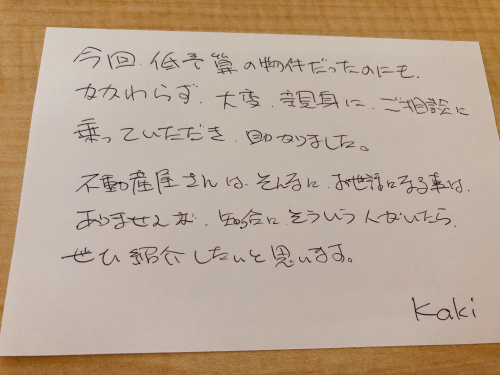 今回、低予算の物件だったのにも、
かかわらず、大変、親身に、ご相談に
乗っていただき、助かりました。
不動産屋さんは、そんなに、お世話になる事は、
ありませんが、知合にそういう人がいたら、
ぜひ紹介したいと思います。
Kaki